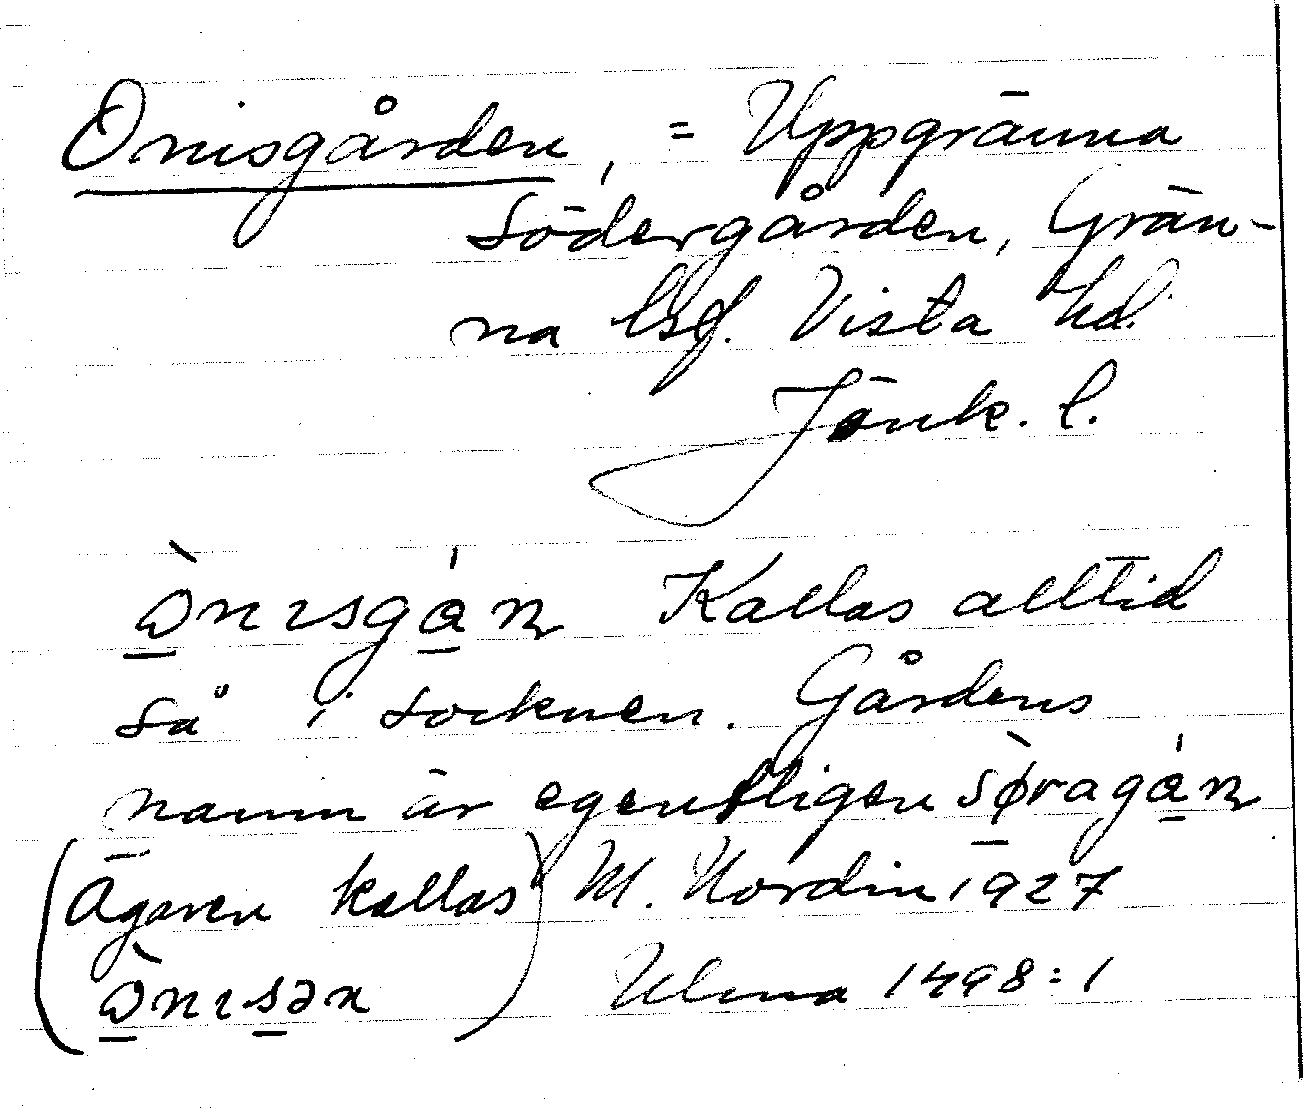 Onisgården, = Uppgränna
Södergården, Grän-
na lsf. Vista hd.
Jönk. l.
Kallas alltid
så i socknen. Gårdens
namn är egentligen
(Ägaren kallas) M. Nordin 1927
Ulma 1498:1